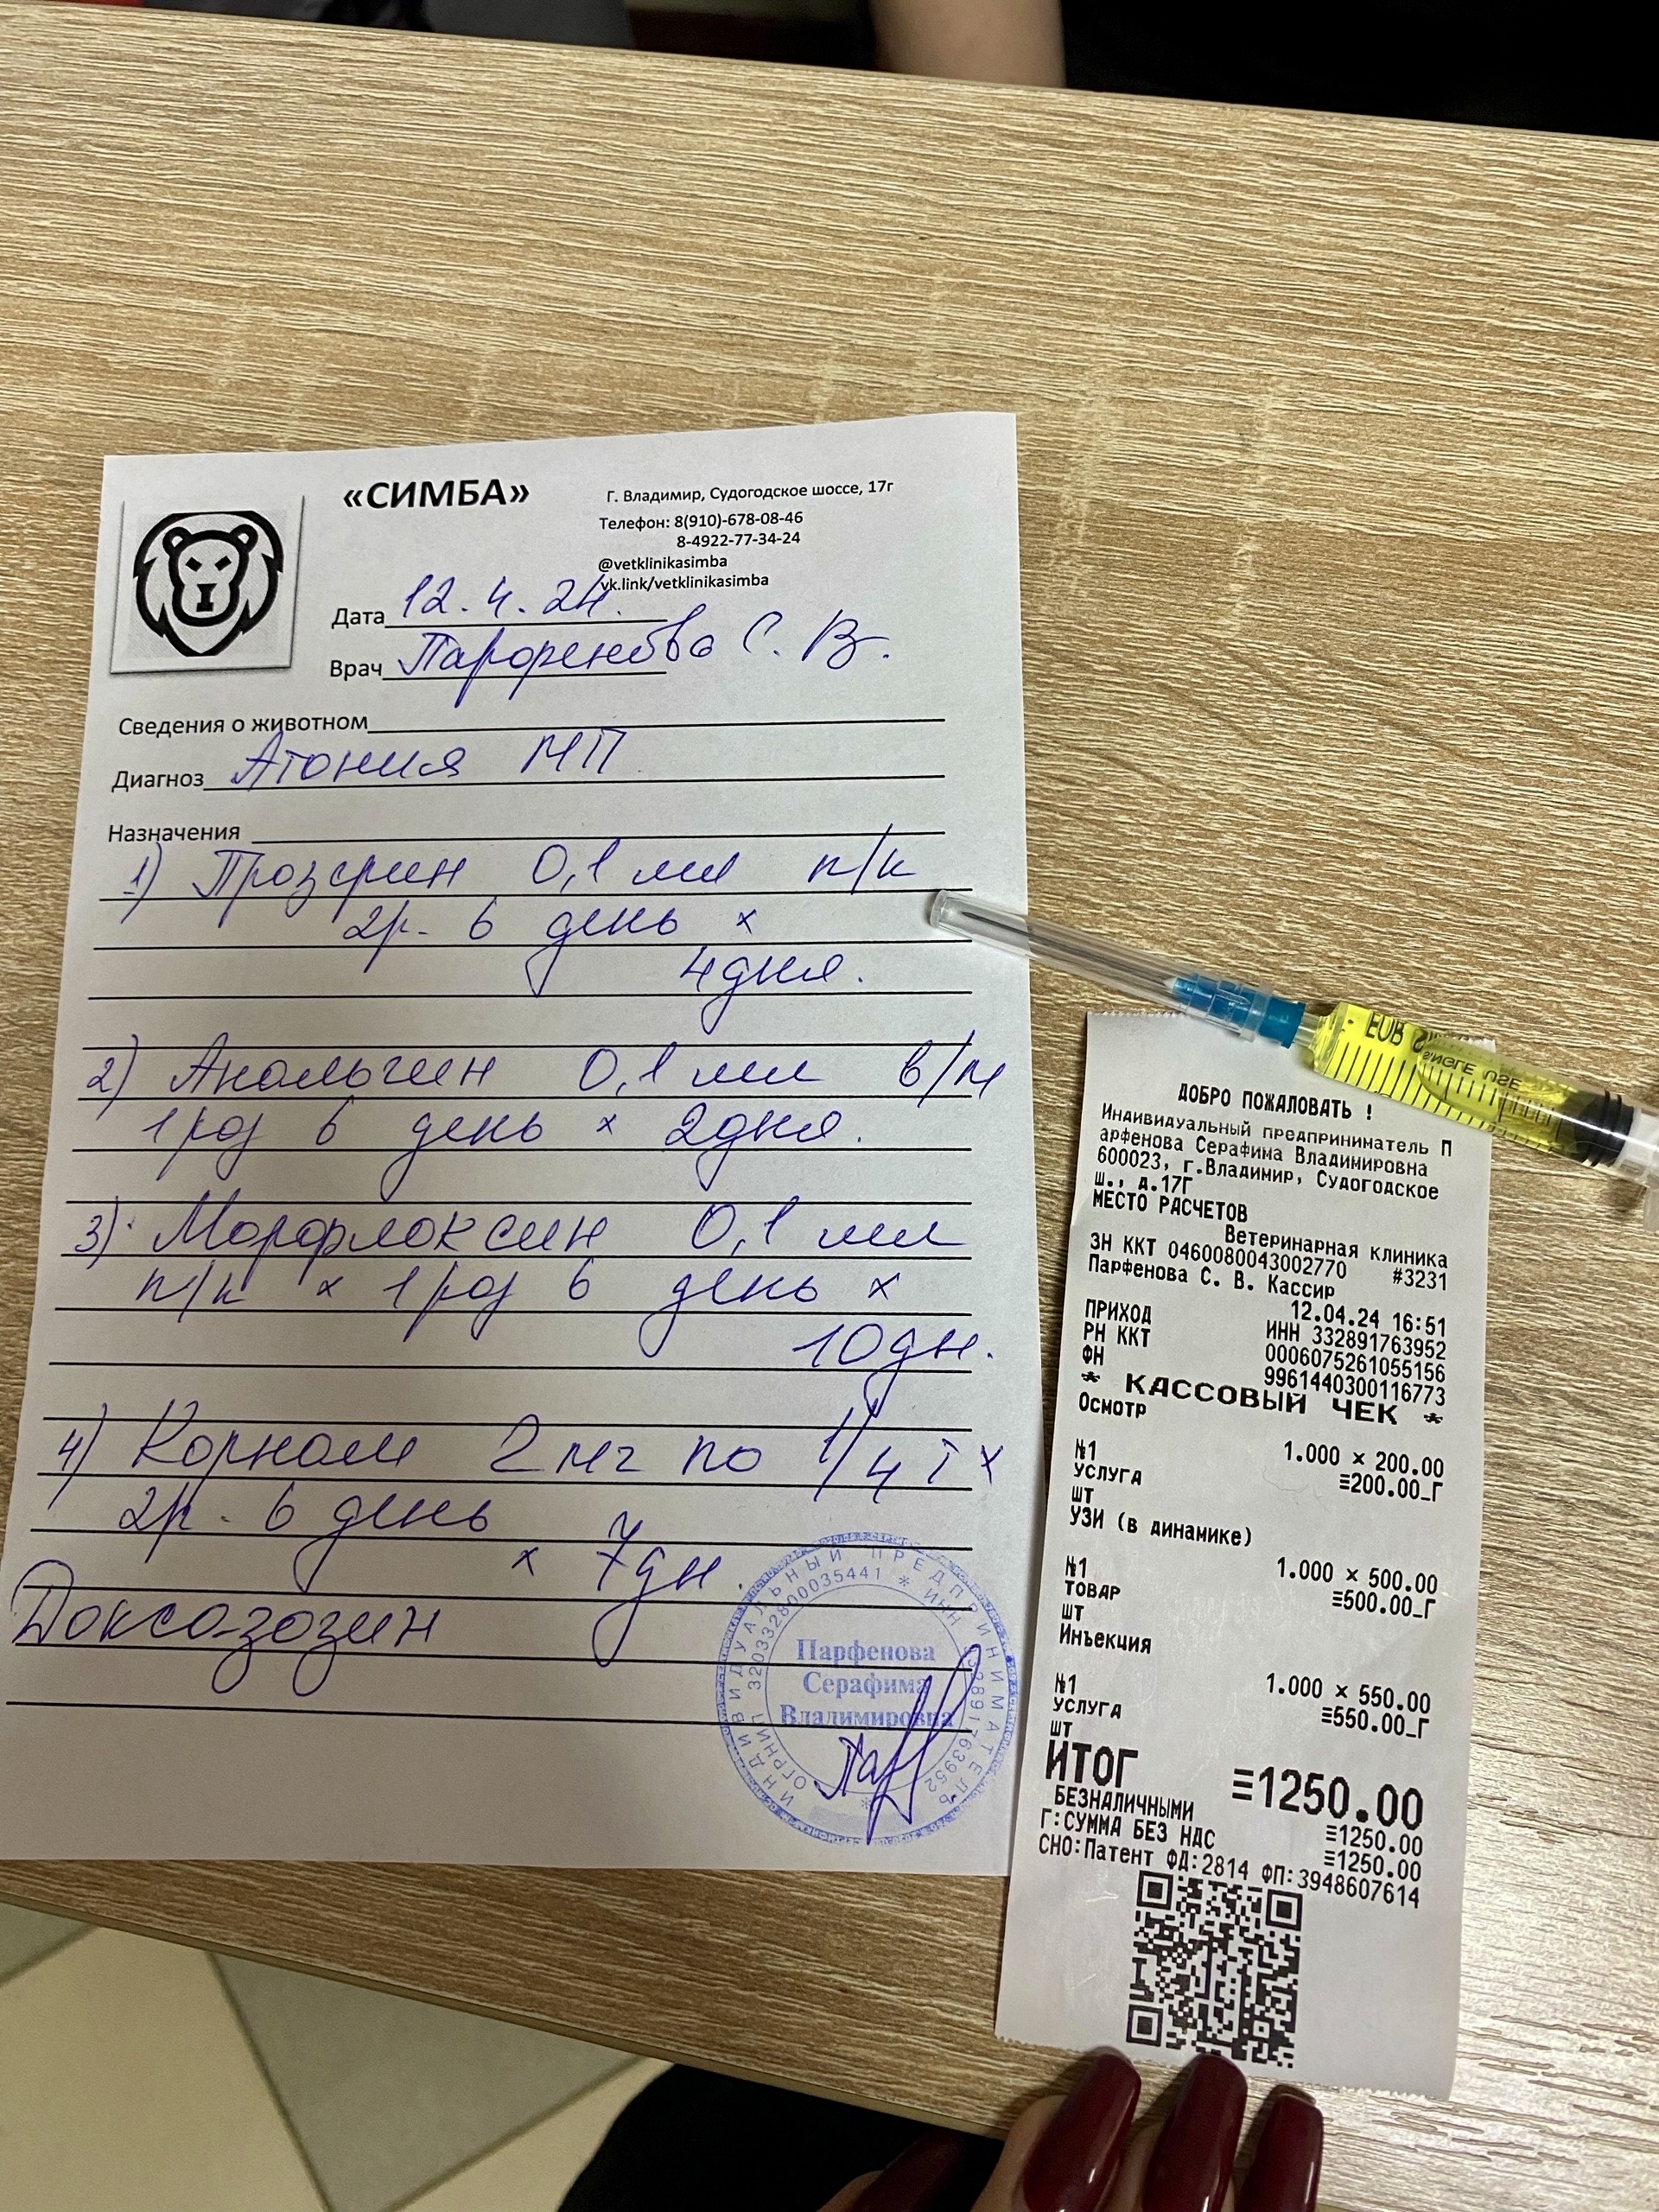 «СИМБА»
Г. Владимир, Судогодское шоссе, 17г
Телефон: 8(910)-678-08-46
8-4922-77-34-24
@vetklinikasimba
vk.link/vetklinikasimba
Дата 12.4.24.
Врач Парфенова С. В.
Сведения о животном
Диагноз Атония МП
Назначения
1) Прозерин 0,1 мл п/к
2р. в день ×
4 дня.
2) Анальгин 0,1 мл в/м
1 раз в день × 2 дня.
3) Марфлоксин 0,1 мл
п/к × 1 раз в день ×
10 дн.
4) Корнам 2 мг по 1/4 т ×
2р. в день
× 7 дн.
Доксазозин
ИНДИВИДУАЛЬНЫЙ ПРЕДПРИНИМАТЕЛЬ
ОГРНИП 320332800035441 * ИНН 332891763952 *
Парфенова
Серафима
Владимировна
EUR
SINGLE USE
ДОБРО ПОЖАЛОВАТЬ !
Индивидуальный предприниматель П
арфенова Серафима Владимировна
600023, г.Владимир, Судогодское
ш., д.17Г
МЕСТО РАСЧЕТОВ
Ветеринарная клиника
ЗН ККТ 0460080043002770 #3231
Парфенова С. В. Кассир
12.04.24 16:51
ПРИХОД ИНН 332891763952
РН ККТ 0006075261055156
ФН 9961440300116773
* КАССОВЫЙ ЧЕК *
Осмотр
№1 1.000 × 200.00
УСЛУГА ≡200.00_Г
шт
УЗИ (в динамике)
№1 1.000 × 500.00
ТОВАР ≡500.00_Г
шт
Инъекция
№1 1.000 × 550.00
УСЛУГА ≡550.00_Г
шт
ИТОГ ≡1250.00
БЕЗНАЛИЧНЫМИ ≡1250.00
Г:СУММА БЕЗ НДС ≡1250.00
СНО:Патент ФД:2814 ФП:3948607614